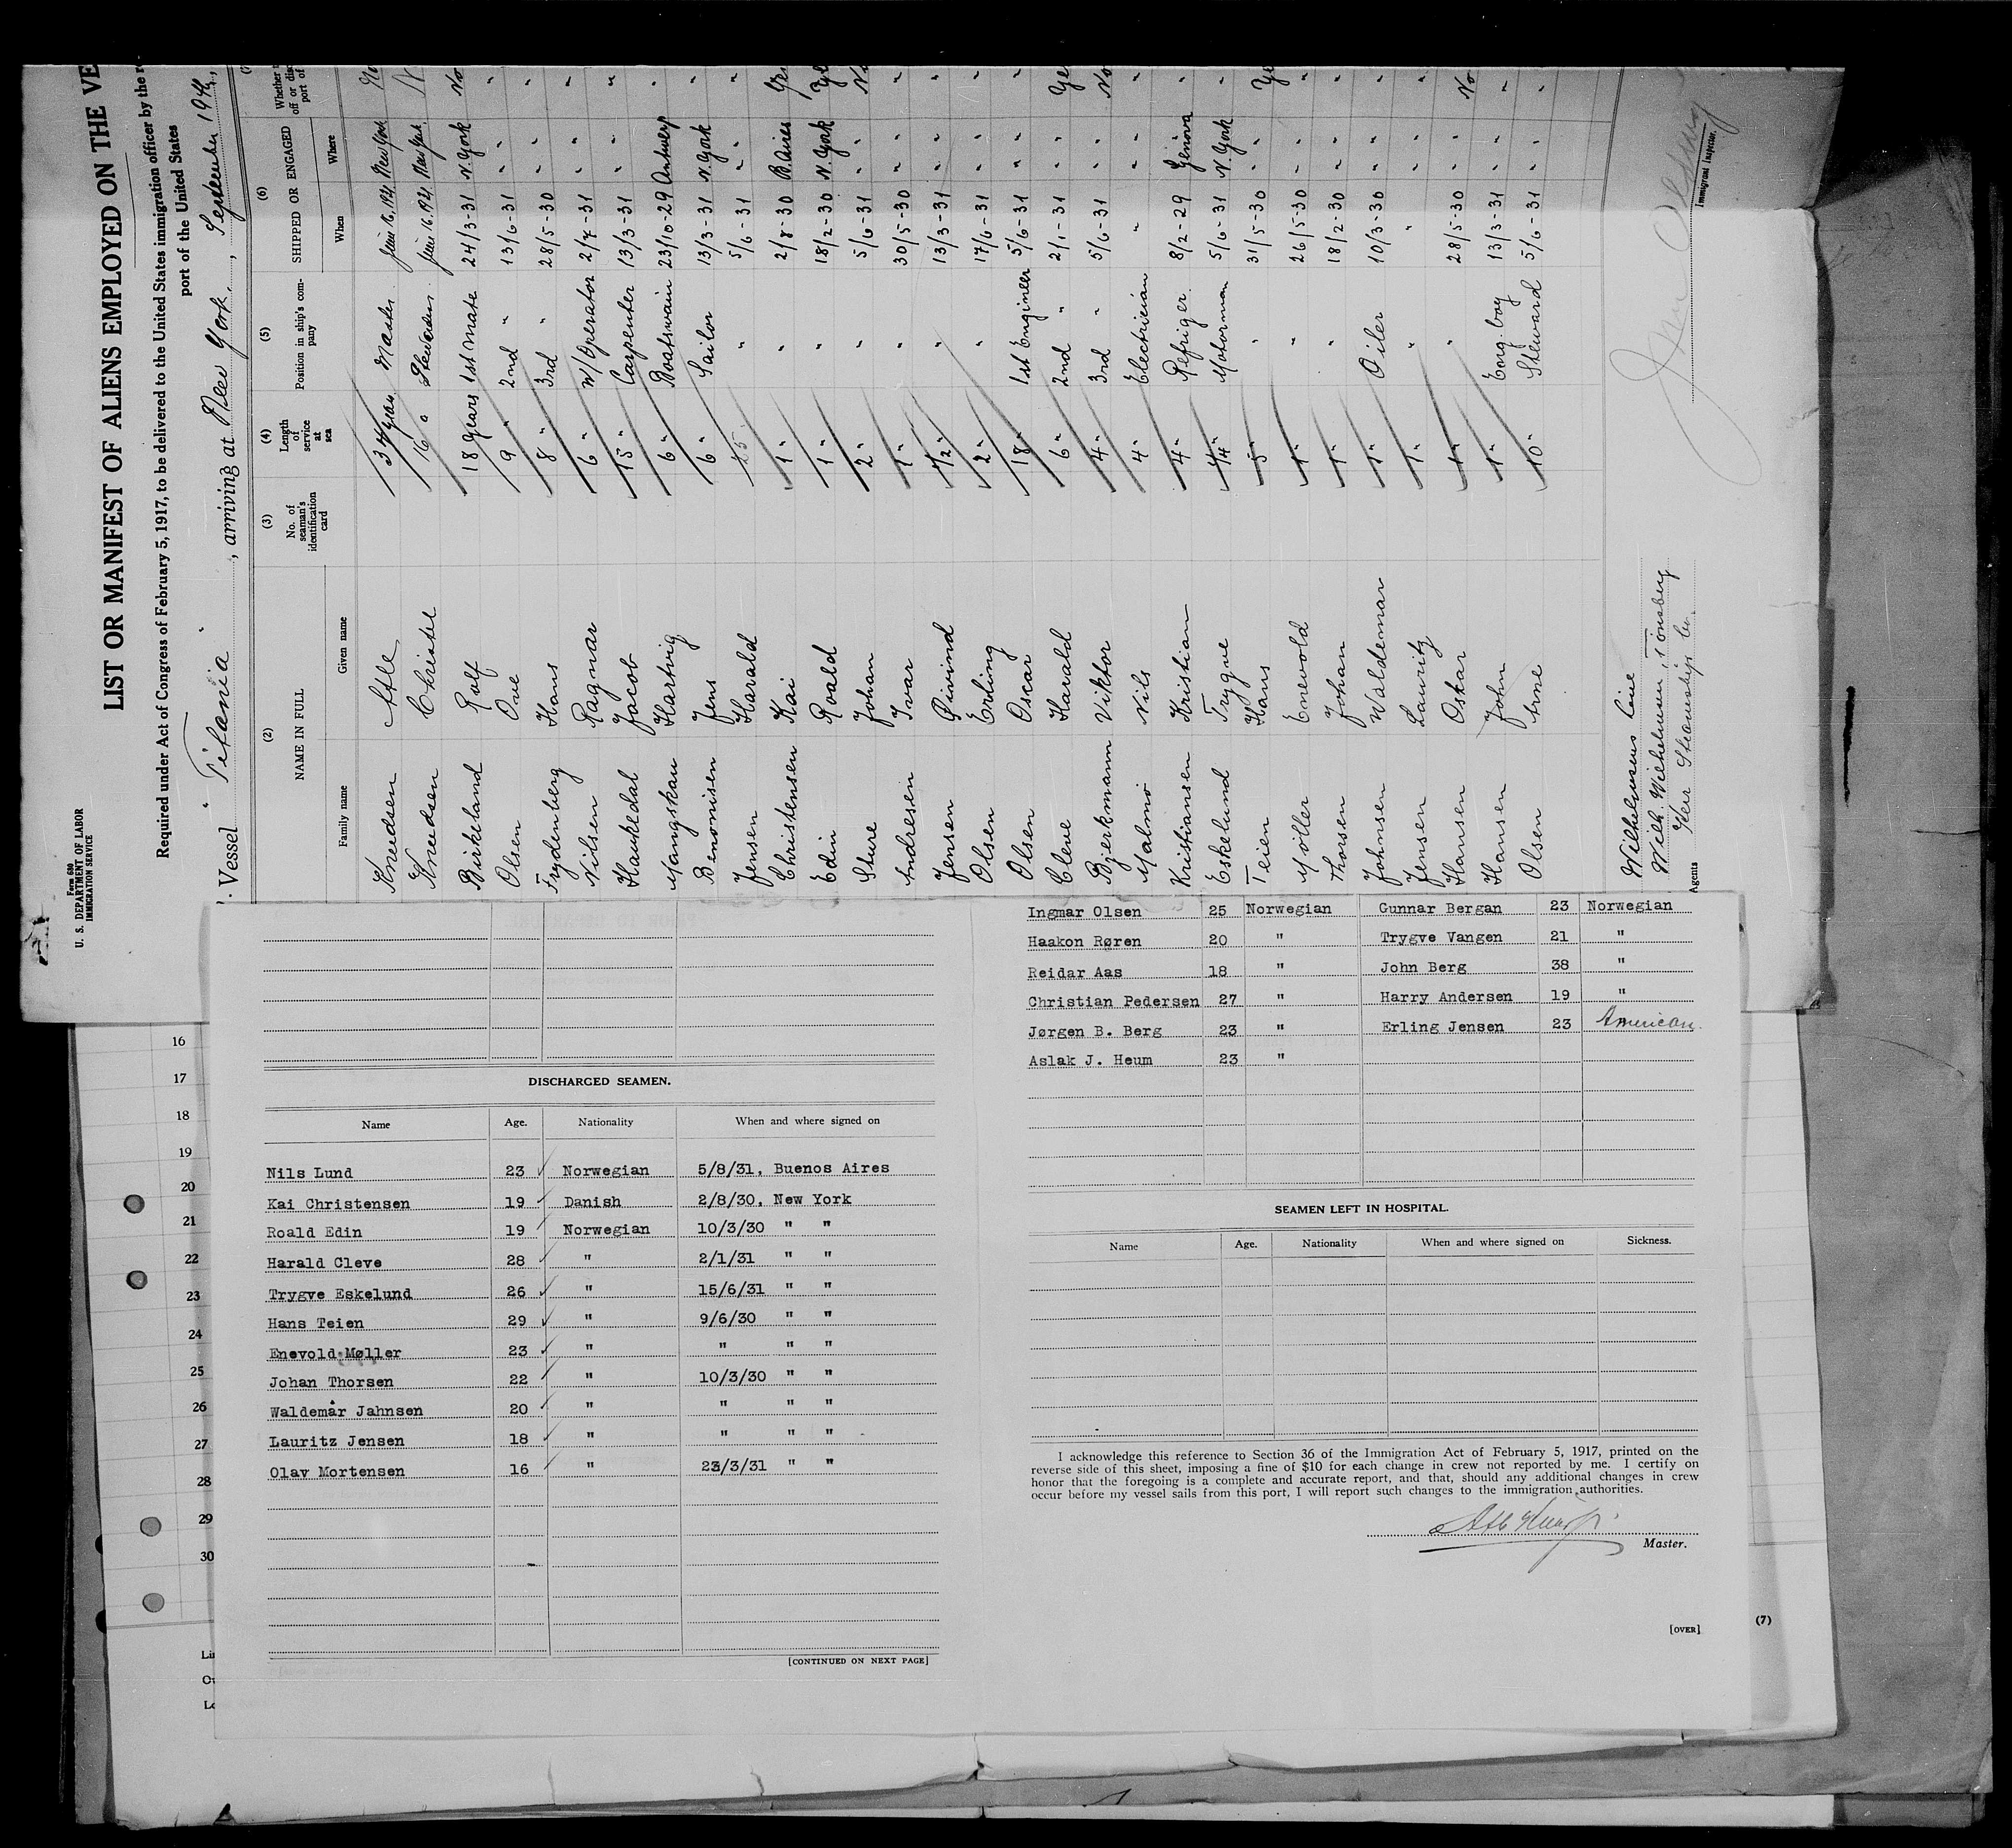 Form 680
U. S. DEPARTMENT OF LABOR
IMMIGRATION SERVICE
LIST OR MANIFEST OF ALIENS EMPLOYED ON THE VE
Required under Act of Congress of February 5, 1917, to be delivered to the United States immigration officer by the
port of the United States
Vessel "Titania", arriving at New York, September 19th,
(2) (3) (4) (5) (6)
NAME IN FULL No. of seaman's identification card Length of service at sea Position in ship's company SHIPPED OR ENGAGED Whether
Family name Given name When Where
Knudsen Atle 34 years Master New York
Knudsen Christel 16 " New York
Birkeland Rolf 18 years 1st Mate 24/3-31 N. York No
Olsen Ove 9 " 2nd " 13/6-31 " " "
Frydenberg Hans 8 " 3rd " 28/5-30 " " "
Nilsen Ragnar 6 " W/Operator 2/7-31 " " "
Haukledal Jacob 15 " Carpenter 13/3-31 " " "
Mangskau Hartvig 6 " Boatswain 23/10-29 Antwerp "
Benonisen Jens 6 " Sailor 13/3-31 N. York "
Jensen Harald " 5/6-31 " " "
Christensen Kai 1 " " 2/8-30 B. Aires Yes
Edin Roald 1 " " 18/2-30 N. York Ye
Sture Johan 2 " " 5/6-31 " " N
Andresen Ivar 1 " " 30/5-30 " " "
Jensen Øivind 1/2 " " 13/3-31 " " "
Olsen Erling 2 " " 17/6-31 " " "
Olsen Oscar 18 " 1st Engineer 5/6-31 " " "
Cleve Harald 6 " 2nd " 2/1-31 " " Ye
Bjerkmann Viktor 4 " 3rd " 5/6-31 " " No
Malmö Nils 4 " Electrician " " " "
Kristiansen Kristian 4 " Refriger. 8/2-29 Genova "
Eskelund Trygve 4 " Motorman 5/6-31 N. York "
Teien Hans 5 " " 31/5-30 " " Ye
Møller Enevold 1 " " 26/5-30 " " "
Thorsen Johan 1 " " 18/2-30 " " "
Johnsen Waldemar 1 " Oiler 10/3-30 " " "
Jensen Lauritz 1 " " " " " "
Hansen Oskar 1 " " 28/5-30 " " No
Hansen John 1 " Eng. boy 13/3-31 " " "
Olsen Arne 10 " Steward 5/6-31 " " "
Wilhelmsens Line
Wilh. Wilhelmsen, Tönsberg
Agents Kerr Steamship Co.
Immigrant Inspector.
16
17
18
19
20
21
22
23
24
25
26
27
28
29
30
DISCHARGED SEAMEN.
Name Age. Nationality When and where signed on
Nils Lund 23 Norwegian 5/8/31, Buenos Aires
Kai Christensen 19 Danish 2/8/30, New York
Roald Edin 19 Norwegian 10/3/30 " "
Harald Cleve 28 " 2/1/31 " "
Trygve Eskelund 26 " 15/6/31 " "
Hans Teien 29 " 9/6/30 " "
Enevold Møller 23 " " " "
Johan Thorsen 22 " 10/3/30 " "
Waldemar Jahnsen 20 " " " "
Lauritz Jensen 18 " " " "
Olav Mortensen 16 " 23/3/31 " "
[CONTINUED ON NEXT PAGE]
Ingmar Olsen 25 Norwegian Gunnar Bergan 23 Norwegian
Haakon Røren 20 " Trygve Vangen 21 "
Reidar Aas 18 " John Berg 38 "
Christian Pedersen 27 " Harry Andersen 19 "
Jørgen B. Berg 23 " Erling Jensen 23 American
Aslak J. Heum 23 "
SEAMEN LEFT IN HOSPITAL.
Name Age. Nationality When and where signed on Sickness.
I acknowledge this reference to Section 36 of the Immigration Act of February 5, 1917, printed on the
reverse side of this sheet, imposing a fine of $10 for each change in crew not reported by me. I certify on
honor that the foregoing is a complete and accurate report, and that, should any additional changes in crew
occur before my vessel sails from this port, I will report such changes to the immigration authorities.
Master.
[OVER]
(7)